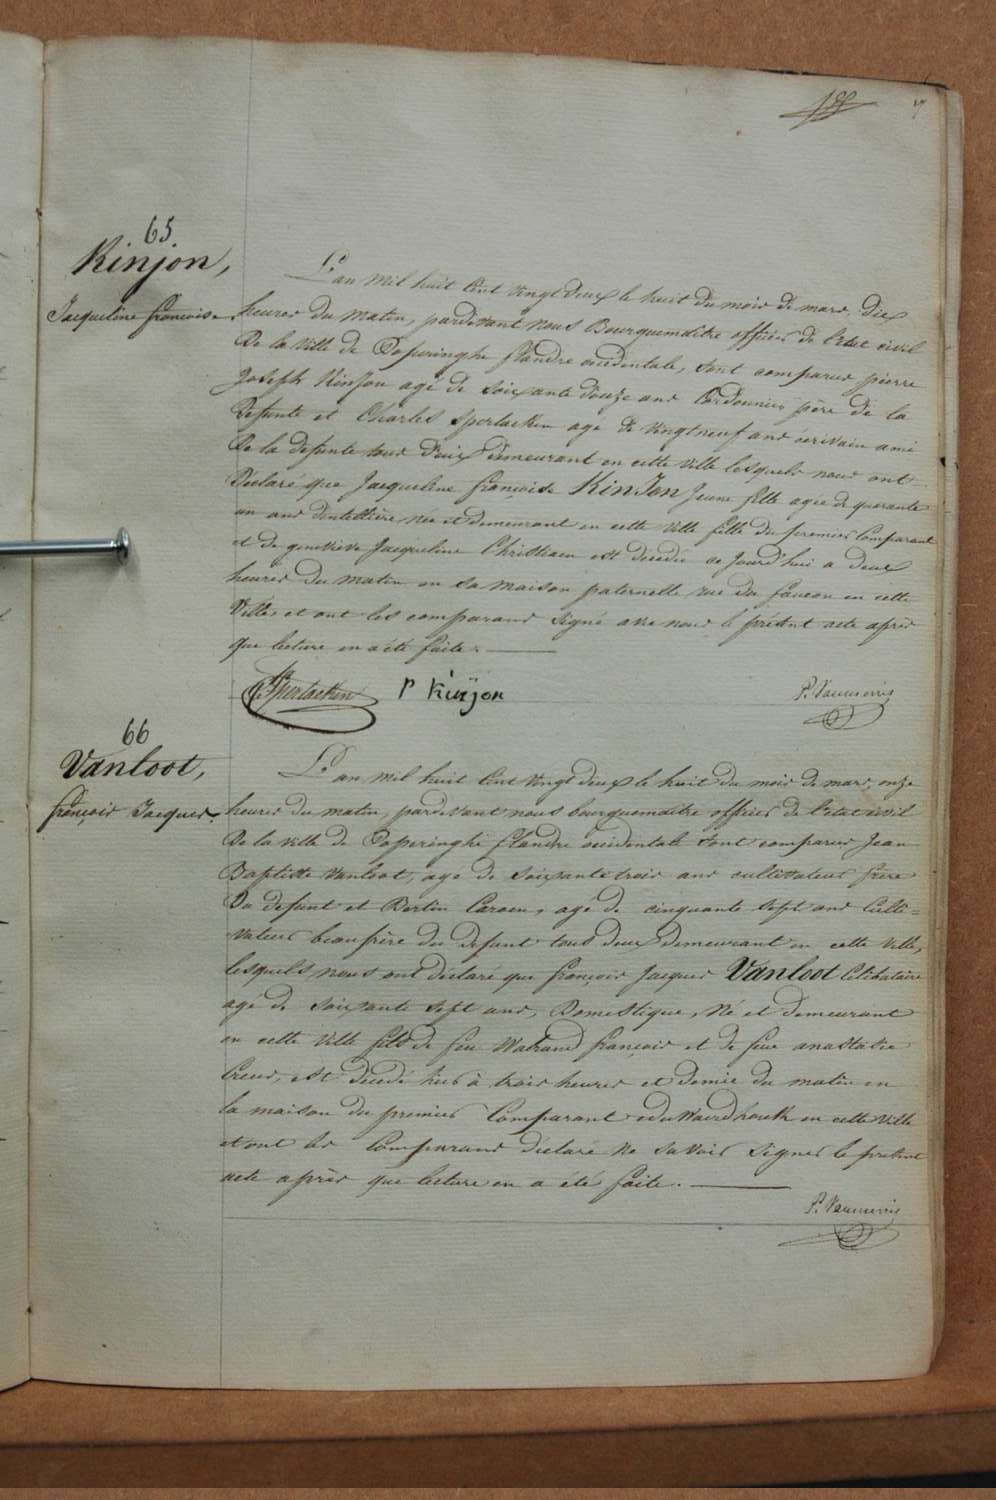 17
65
Kinjon,
Jacqueline françoise
L'an mil huit Cent vingt deux le huit du mois de mars, dix
heures du matin, pardevant nous Bourguemaître officier de l'état civil
De la ville de Poperinghe flandre occidentale, sont comparus pierre
Joseph Kinjon agé de soixante douze ans Cordonnier père de la
Defunte et Charles Sperlaeken agé de vingt neuf ans écrivain ami
De la defunte tous deux demeurant en cette ville lesquels nous ont
Déclaré que Jacqueline françoise KinJon Jeune fille agée de quarante
un ans dentellière née et demeurant en cette ville fille du premier Comparant
et de genevieve Jacqueline Christiaen est decedée ce Jourd'hui a deux
heures du matin en sa maison paternelle rue du faucon en cette
Ville, et ont les comparans signé avec nous le présent acte après
que lecture en a été faite.
Sperlaeken P Kinjon P. Vanmerris
66
Vanloot,
françois Jacques.
L'an mil huit Cent vingt deux le huit du mois de mars, onze
heures du matin, pardevant nous bourguemaître officier de l'etat civil
De la ville de Poperinghe flandre occidentale sont comparus Jean
Baptiste Vanloot, agé de soixante trois ans cultivateur frère
Du defunt et Bertin Caroen, agé de cinquante sept ans Culti=
vateur beaufrère du Defunt tous deux demeurant en cette ville,
lesquels nous ont déclaré que françois Jacques Vanloot Celibataire
agé de soixante sept ans, Domestique, Né et demeurant
en cette ville fils de feu Walrand françois et de feue anastasie
est decedé hier à trois heures et demie du matin en
la maison du premier Comparant en cette ville
et ont les Comparans déclaré ne savoir signer le présent
acte après que lecture en a été faite.
P. Vanmerris